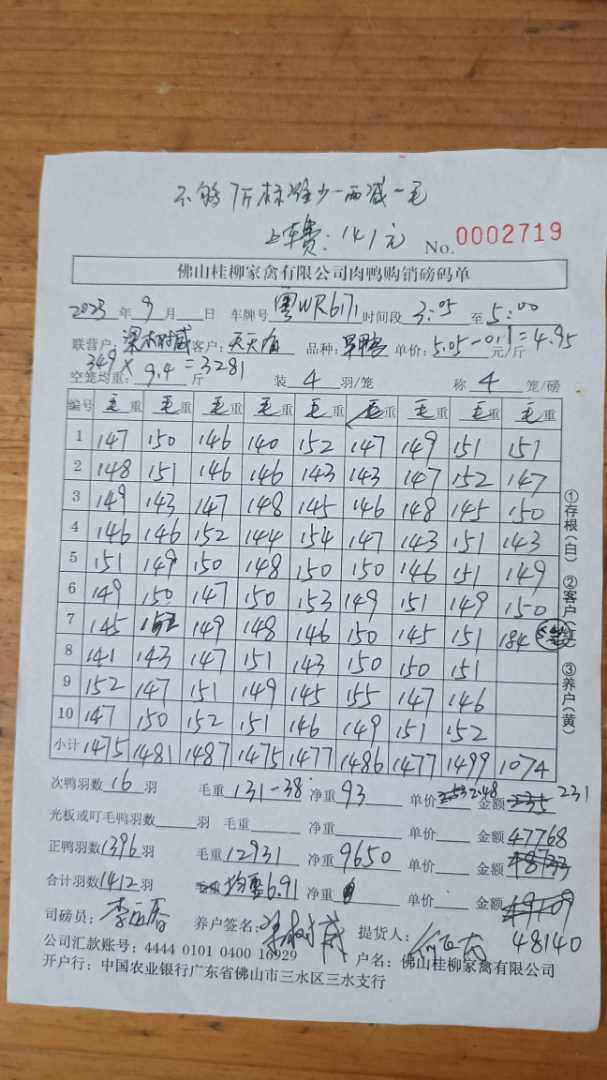 不够7斤标准少一两减一毛
上车费：141元
No. 0002719
佛山桂柳家禽有限公司肉鸭购销磅码单
2023年9月 日 车牌号 粤WR6171 时间段 3:05 至 5:00
联营户： 客户： 品种： 单价：5.05-0.1=4.95 元/斤
349×
空笼均重：9.4=3281 斤 装 4 羽/笼 称 4 笼/磅
编号 毛重 毛重 毛重 毛重 毛重 毛重 毛重 毛重 毛重
1 147 150 146 140 152 147 149 151 151
2 148 151 146 146 143 143 147 152 147
3 149 143 147 148 145 146 148 145 150
4 146 146 152 144 154 147 143 151 143
5 151 149 150 148 150 150 146 151 149
6 149 150 147 150 153 149 151 149 150
7 145 152 149 148 146 150 145 151 184
8 141 143 147 151 143 150 150 151
9 152 147 151 149 145 155 147 146
10 147 150 152 151 146 149 151 152
小计 1475 1481 1487 1475 1477 1486 1477 1499 1074
次鸭羽数 16 羽 毛重 131-38 净重 93 单价 2.48 金额 235 231
光板或叮毛鸭羽数 羽 毛重 净重 单价 金额 47768
正鸭羽数 1396 羽 毛重 12931 净重 9650 单价 金额
合计羽数 1412 羽 均重6.91 净重 单价 金额 49109
司磅员： 养户签名： 提货人： 48140
公司汇款账号：4444 0101 0400 16929 户名：佛山桂柳家禽有限公司
开户行：中国农业银行广东省佛山市三水区三水支行
①存根（白） ②客户（红） ③养户（黄）